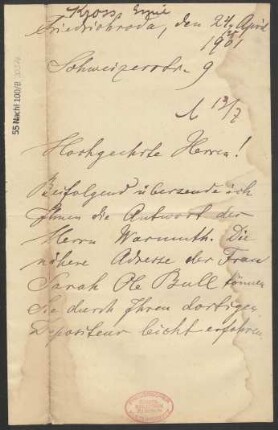 Kross, Emil
Friedrichroda, den 24. April
1901
Schweizerstr. 9
13/7
Hochgeehrte Herren!
Beifolgend übersende ich
Ihnen die Antwort der
Herrn Warmuth. Die
nähere Adresse der Frau
Sarah Ole Bull können
Sie durch Ihren dortigen
Depositeur leicht erfahren
55 Nachl 100/B